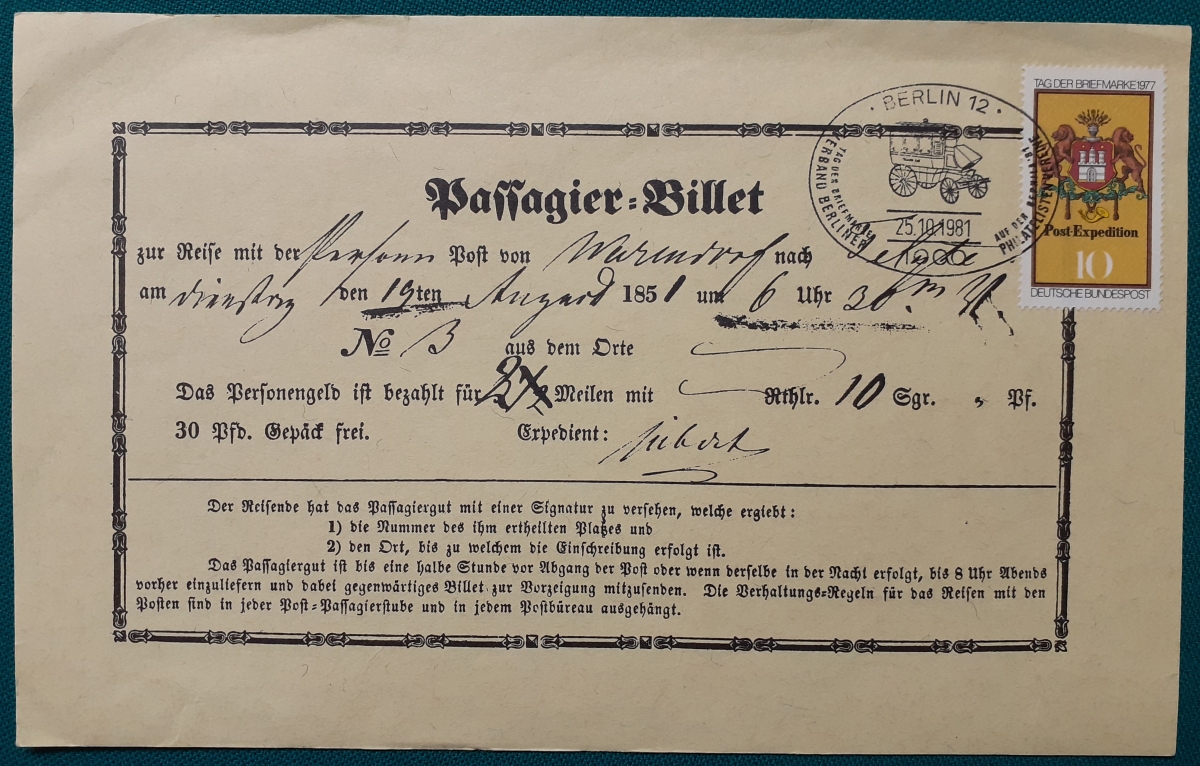 TAG DER BRIEFMARKE 1977
Post-Expedition
10
DEUTSCHE BUNDESPOST
· BERLIN 12 ·
25.10.1981
1000
TAG DER BRIEFMARKE
VERBAND BERLINER
PHILATELISTEN
AUF DER
Passagier-Billet
zur Reise mit der Personen Post von Warendorf nach
am Dienstag den 19ten August 1851 um 6 Uhr 30
No 3 aus dem Orte
Das Personengeld ist bezahlt für Meilen mit Rthlr. 10 Sgr. „ Pf.
30 Pfd. Gepäck frei. Expedient:
Der Reisende hat das Passagiergut mit einer Signatur zu versehen, welche ergiebt:
1) die Nummer des ihm ertheilten Platzes und
2) den Ort, bis zu welchem die Einschreibung erfolgt ist.
Das Passagiergut ist bis eine halbe Stunde vor Abgang der Post oder wenn derselbe in der Nacht erfolgt, bis 8 Uhr Abends
vorher einzuliefern und dabei gegenwärtiges Billet zur Vorzeigung mitzusenden. Die Verhaltungs-Regeln für das Reisen mit den
Posten sind in jeder Post-Passagierstube und in jedem Postbüreau ausgehängt.